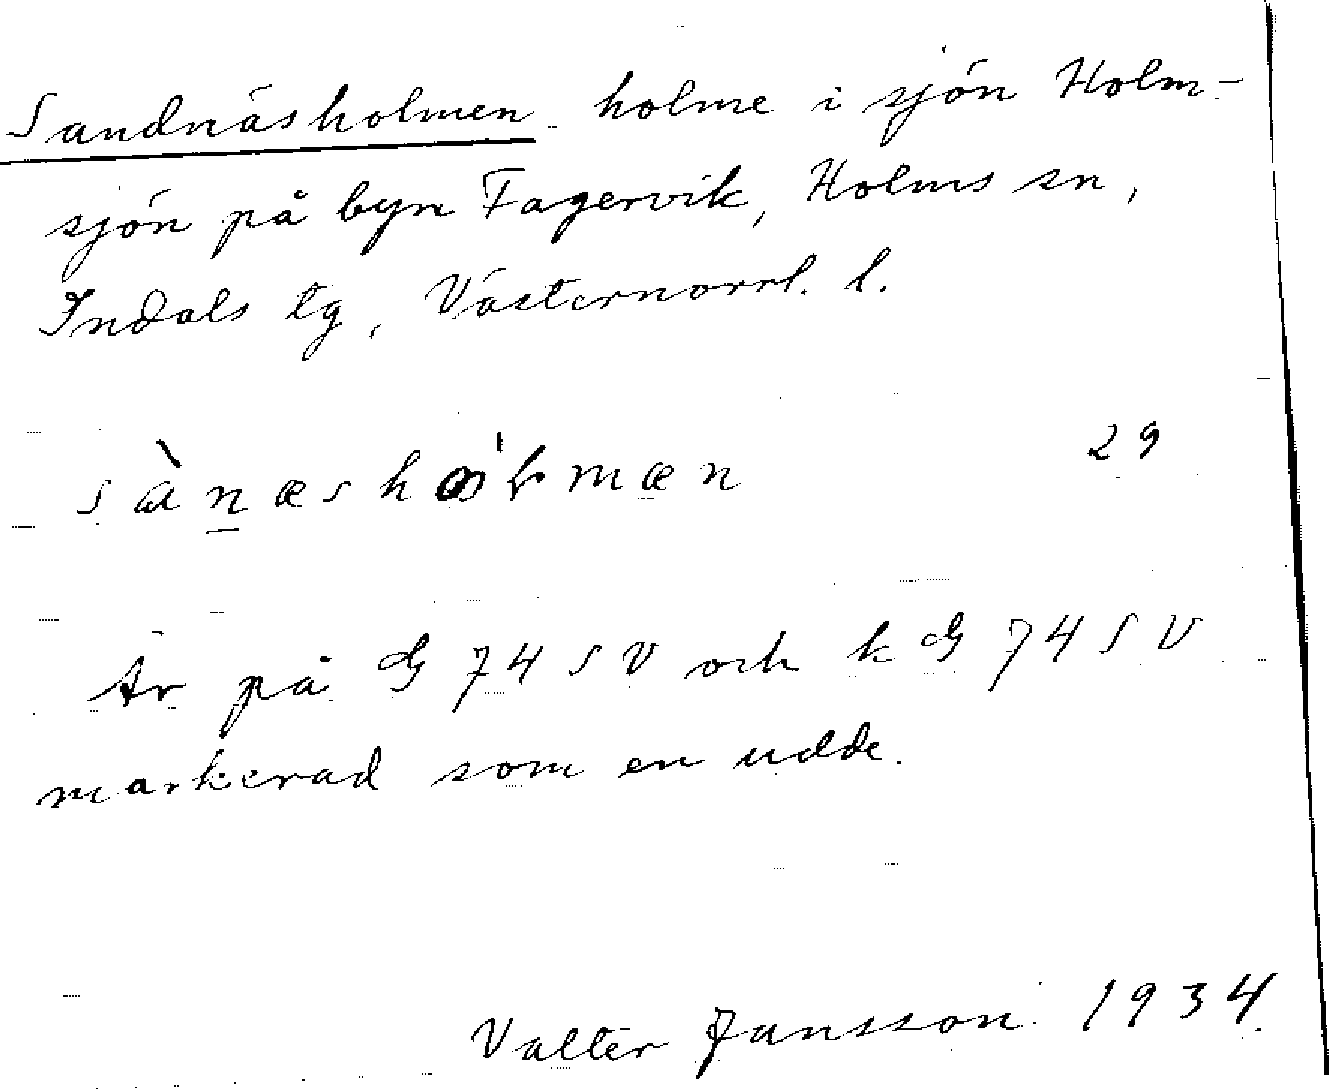 Sandnäsholmen holme i sjön Holm-
sjön på byn Fagervik, Holms sn,
Indals tg, Västernorrl. l.
29
Är på G 74 SV och k G 74 SV
markerad som en udde.
Valter Jansson 1934.